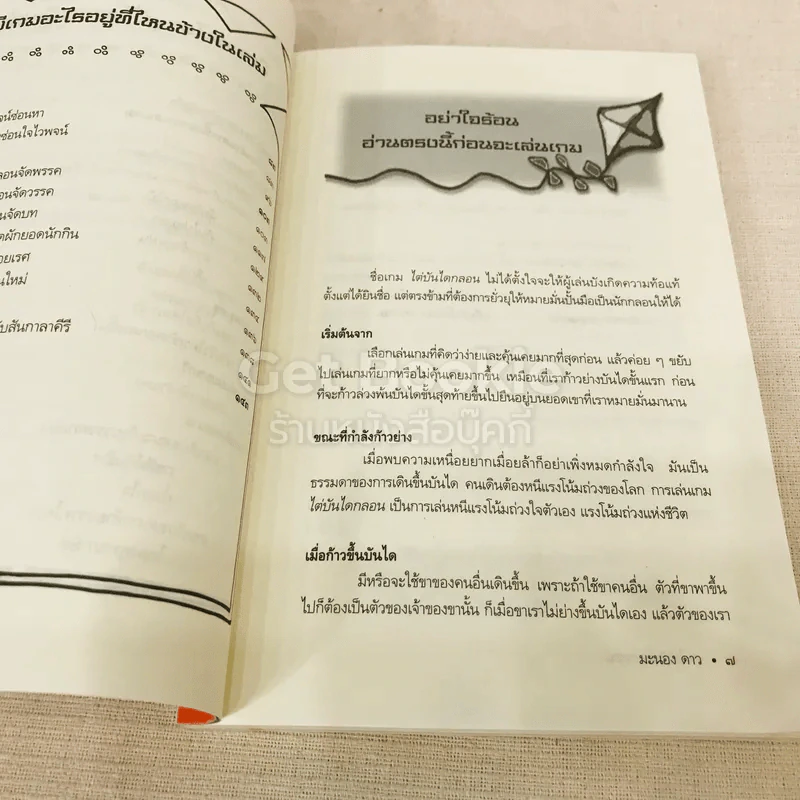 มีเกมอะไรอยู่ที่ไหนบ้างในเล่ม
ซ่อนใจไวพจน์
กลอนจัดพรรค
นจัดบท
ผักยอดนักกิน
ยเรศ
นใหม่
บสันกาลาคีรี
๑๓๒
๑๓๔
๑๔๓
อย่าใจร้อน
อ่านตรงนี้ก่อนจะเล่นเกม
ชื่อเกม ไต่บันไดกลอน ไม่ได้ตั้งใจจะให้ผู้เล่นบังเกิดความท้อแท้
ตั้งแต่ได้ยินชื่อ แต่ตรงข้ามที่ต้องการยั่วยุให้หมายมั่นปั้นมือเป็นนักกลอนให้ได้
เริ่มต้นจาก
เลือกเล่นเกมที่คิดว่าง่ายและคุ้นเคยมากที่สุดก่อน แล้วค่อย ๆ ขยับ
ไปเล่นเกมที่ยากหรือไม่คุ้นเคยมากขึ้น เหมือนที่เราก้าวย่างบันไดขั้นแรก ก่อน
ที่จะก้าวล่วงพ้นบันไดขั้นสุดท้ายขึ้นไปยืนอยู่บนยอดเขาที่เราหมายมั่นมานาน
Get Bookie
ร้านหนังสือบุ๊คกี้
ขณะที่กำลังก้าวย่าง
เมื่อพบความเหนื่อยยากเมื่อยล้าก็อย่าเพิ่งหมดกำลังใจ มันเป็น
ธรรมดาของการเดินขึ้นบันได คนเดินต้องหนีแรงโน้มถ่วงของโลก การเล่นเกม
ไต่บันไดกลอน เป็นการเล่นหนีแรงโน้มถ่วงใจตัวเอง แรงโน้มถ่วงแห่งชีวิต
เมื่อก้าวขึ้นบันได
มีหรือจะใช้ขาของคนอื่นเดินขึ้น เพราะถ้าใช้ขาคนอื่น ตัวที่ขาพาขึ้น
ไปก็ต้องเป็นตัวของเจ้าของขานั้น ก็เมื่อขาเราไม่ย่างขึ้นบันไดเอง แล้วตัวของเรา
มะนอง ดาว • ๗